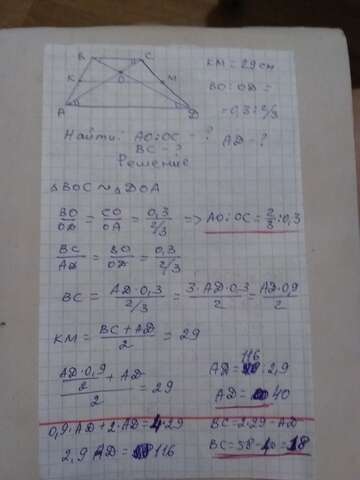 B C
K O M
A D
KM = 29 см
BO : OD =
= 0,3 : 2/3
Найти: AO:OC - ?
BC - ? AD - ?
Решение
△BOC ~ △DOA
BO/OD = CO/OA = 0,3/(2/3) => AO:OC = 2/3 : 0,3
BC/AD = BO/OD = 0,3/(2/3)
BC = AD·0,3/(2/3) = 3·AD·0,3/2 = AD·0,9/2
KM = (BC + AD)/2 = 29
(AD·0,9/2 + AD)/2 = 29
AD = 116 : 2,9
AD = 40
0,9·AD + 2·AD = 4·29
2,9 AD = 116
BC = 2·29 - AD
BC = 58 - 40 = 18